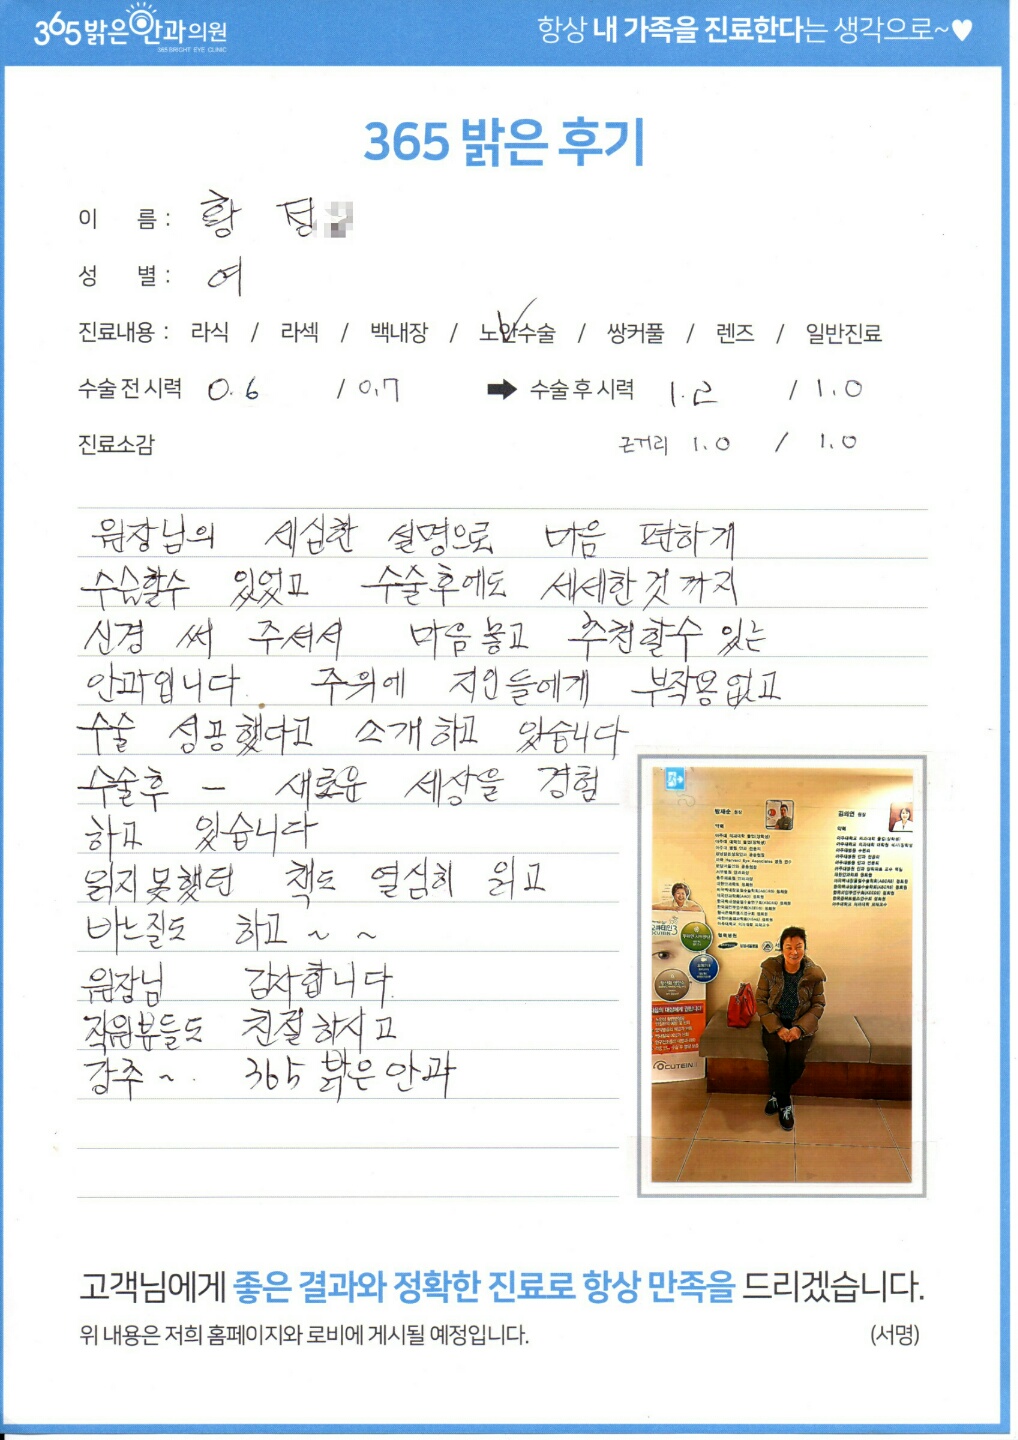 365밝은안과의원
365 BRIGHT EYE CLINIC
항상 내 가족을 진료한다는 생각으로~♥
365 밝은 후기
이 름 : 황 정
성 별 : 여
진료내용 : 라식 / 라섹 / 백내장 / 노안수술 / 쌍커풀 / 렌즈 / 일반진료
수술 전 시력 0.6 / 0.7 ➡ 수술 후 시력 1.2 / 1.0
진료소감 근거리 1.0 / 1.0
원장님의 세심한 설명으로 마음 편하게
수술할수 있었고 수술후에도 세세한것 까지
신경 써 주셔서 마음놓고 추천할수 있는
안과입니다. 주위에 지인들에게 부작용없고
수술 성공했다고 소개하고 있습니다
수술후 - 새로운 세상을 경험
하고 있습니다
읽지못했던 책도 열심히 읽고
바느질도 하고 ~ ~
원장님 감사합니다.
직원분들도 친절하시고
강추 ~. 365 밝은안과
김의연 원장
약력
약력
OCUTEIN
고객님에게 좋은 결과와 정확한 진료로 항상 만족을 드리겠습니다.
위 내용은 저희 홈페이지와 로비에 게시될 예정입니다. (서명)